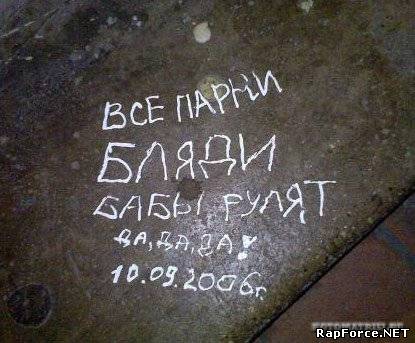 ВСЕ ПАРНИ
БЛЯДИ
БАБЫ РУЛЯТ
ДА, ДА, ДА!
10.09.2006г.
RapForce.NET